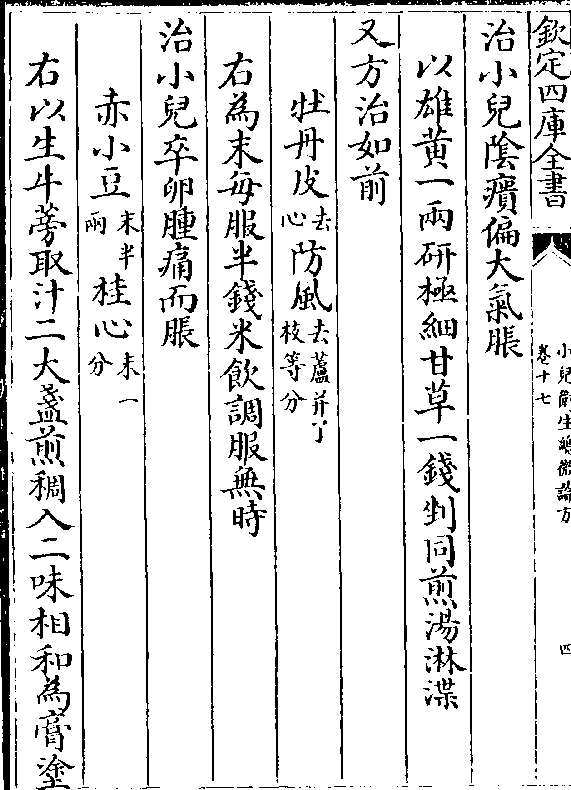 欽定四庫全書
小兒衛生總微論方
卷十七
四
治小兒陰㿗偏大氣脹
以雄黃一兩研極細甘草一錢剉同煎湯淋渫
又方治如前
牡丹皮去心 防風去蘆并丫枝等分
右為末每服半錢米飲調服無時
治小兒卒卵腫痛而脹
赤小豆末半兩 桂心末一分
右以生牛蒡取汁二大盞煎稠入二味相和為膏塗